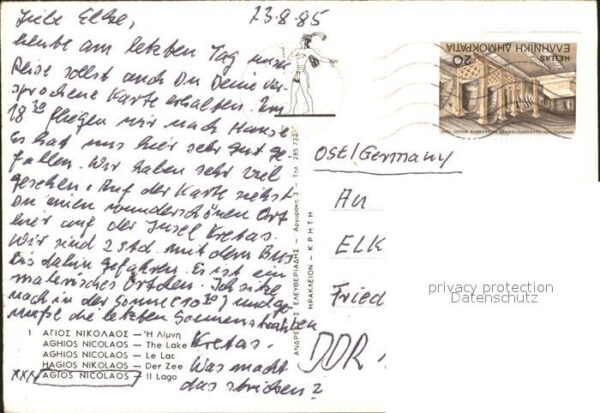 23.8.85
Liebe Elke,
heute am letzten Tag unsrer
Reise sollst auch Du Deine ver-
sprochene Karte erhalten. Um
18³⁰ fliegen wir nach Hause.
Es hat uns hier sehr gut ge-
fallen. Wir haben sehr viel
gesehen. Auf der Karte siehst
Du einen wunderschönen Ort
hier auf der Insel Kretas.
Wir sind 2 Std. mit dem Bus
bis dahin gefahren. Es ist ein
malerisches Örtchen. Ich sitze
noch in der Sonne und ge-
nieße die letzten Sonnenstrahlen
Kretas.
Was macht
das stricken?
1 ΑΓΙΟΣ ΝΙΚΟΛΑΟΣ — Ἡ Λίμνη
AGHIOS NICOLAOS — The Lake
AGHIOS NICOLAOS — Le Lac
HAGIOS NIKOLAOS — Der Zee
xxx AGIOS NICOLAOS — Il Lago
ΑΝΔΡΕΑΣ ΕΛΕΥΘΕΡΙΑΔΗΣ — Αργυράκη 3 — Τηλ. 285-732
ΗΡΑΚΛΕΙΟΝ - ΚΡΗΤΗ
ΕΛΛΗΝΙΚΗ ΔΗΜΟΚΡΑΤΙΑ
HELLAS
20
OST/Germany
An
ELK
Fried
DDR
privacy protection
Datenschutz